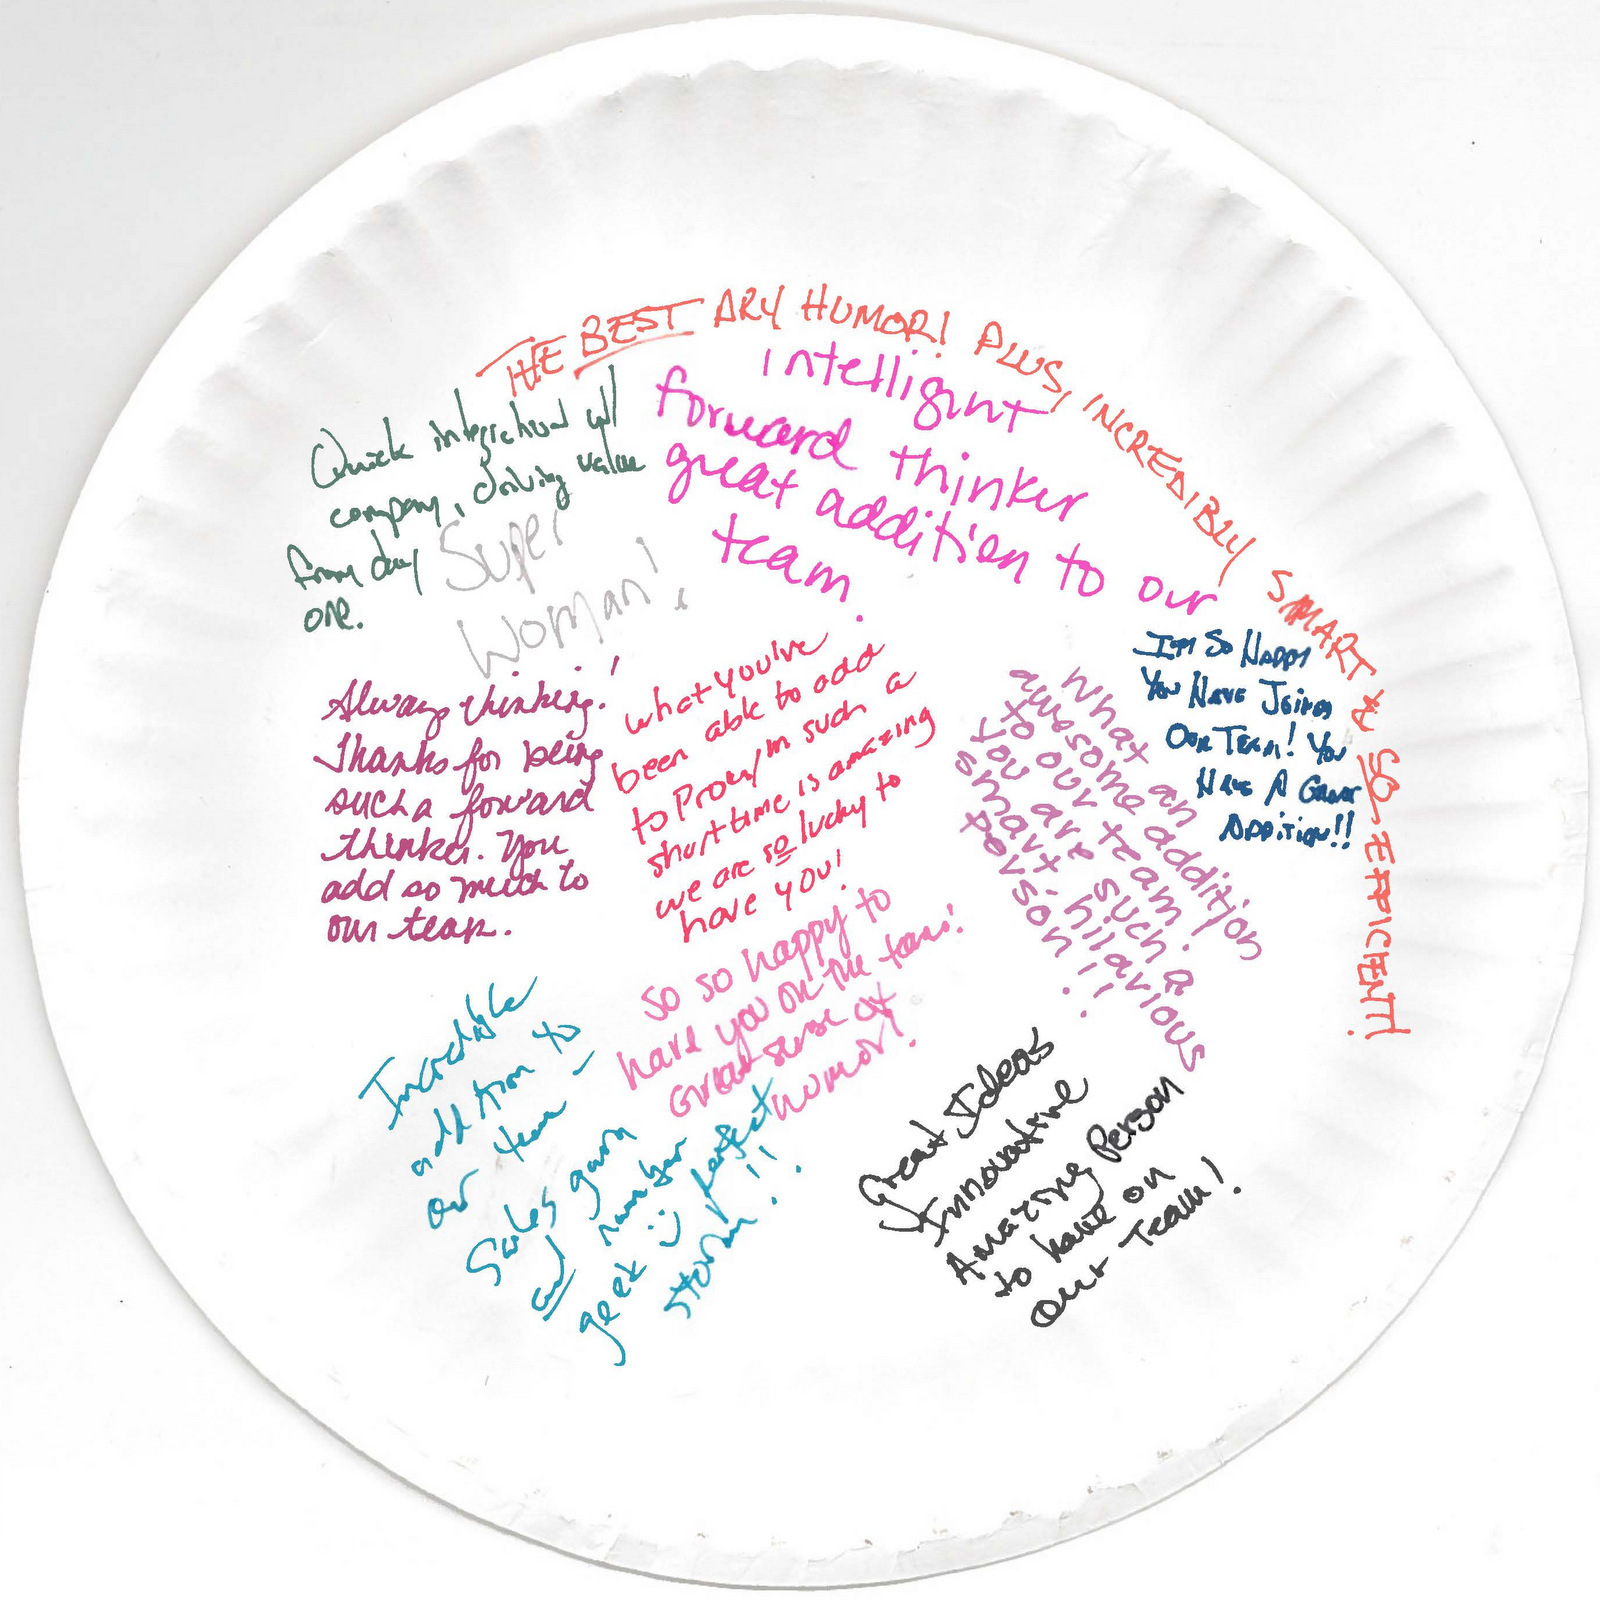 THE BEST DRY HUMOR! PLUS, INCREDIBLY SMART & SO EFFICIENT!
Quick integration w/
company, driving value
from day
one.
Super
Woman!
intelligint
forward thinker
great addition to our
team.
I'm So Happy
You Have Joined
Our Team! You
Have A Great
Addition!!
Always thinking!
Thanks for being
such a forward
thinker. You
add so much to
our team.
what you've
been able to add
to Prom/m such a
short time is amazing
we are so lucky to
have you!
What an
awesome addition
to our team!
You are such a
smart, hilarious
person!!
so so happy to
have you on the team!
Great sense of
humor!
Incredible
addition to
our team
Sales guru
and number
geek perfect
storm!!
Great Ideas
Innovative
Amazing Person
to have on
our Team!